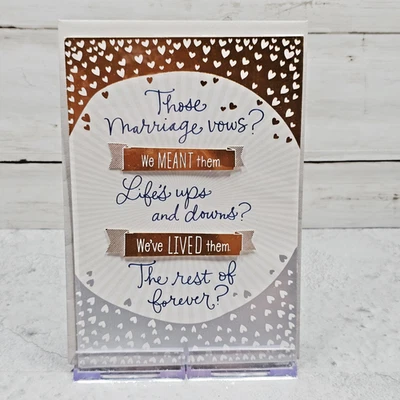 Those
Marriage vows?
We MEANT them.
Life's ups
and downs?
We've LIVED them.
The rest of
forever?